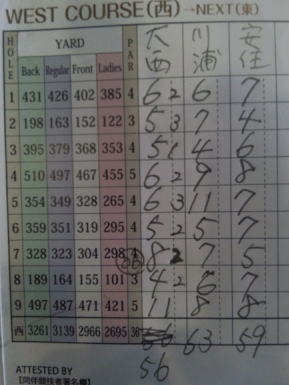 WEST COURSE(西)→NEXT(東)
HOLE YARD PAR 大西 川浦 安住
Back Regular Front Ladies
1 431 426 402 385 4 6 2 6 7
2 198 163 152 122 3 5 3 7 4
3 395 379 368 353 4 5 1 4 6
4 510 497 467 455 5 6 2 9 8
5 354 349 328 265 4 6 3 11 7
6 359 351 319 295 4 5 2 5 7
7 328 323 304 298 4 8 2 7 5
8 189 164 155 101 3 4 2 6 7
9 497 487 471 421 5 11 8 8
西 3261 3139 2966 2695 36 63 59
56
ATTESTED BY
【同伴競技者署名欄】